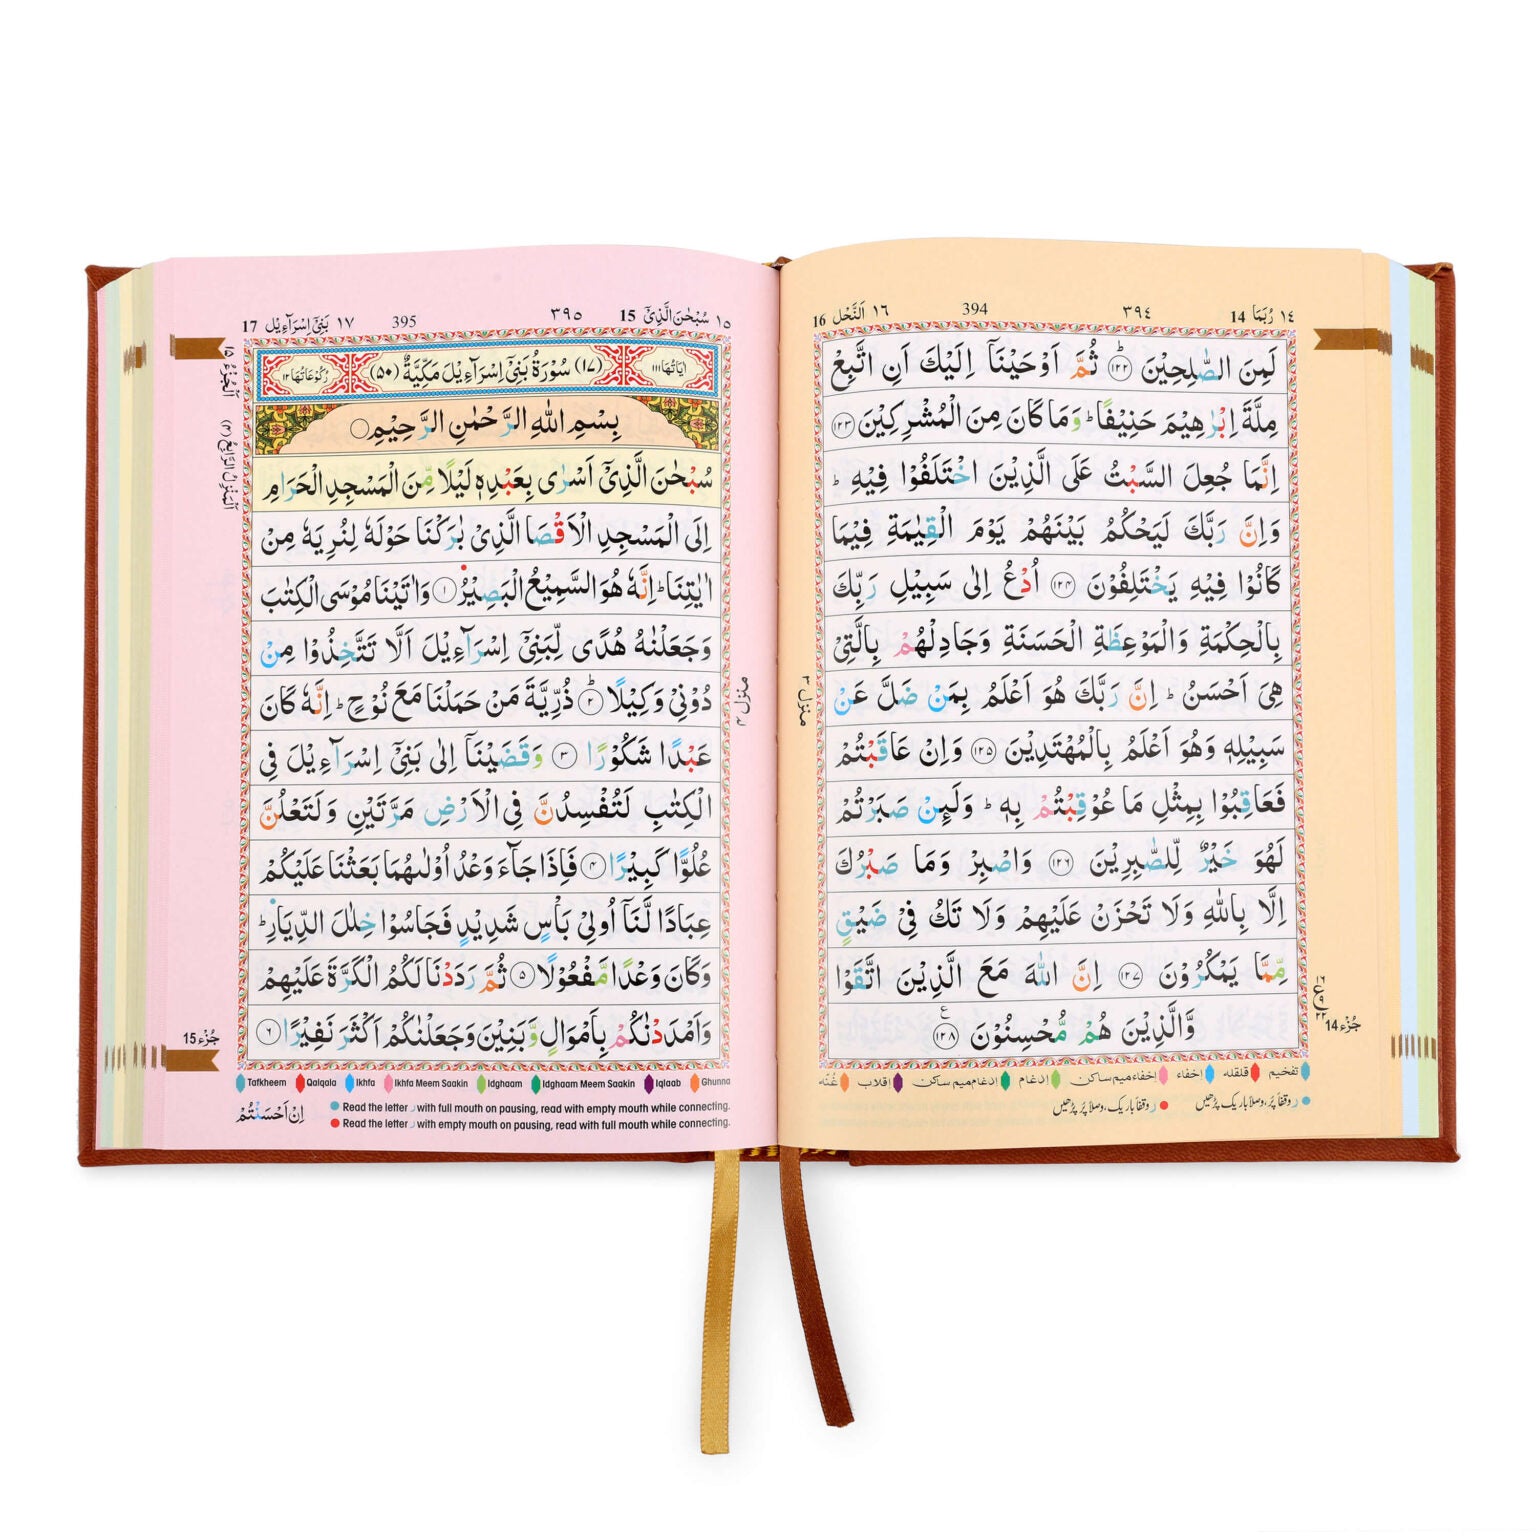 ١٤ رُبَمَا 14 ٣٩٤ 394 اَلنَّحْل ١٦ 16
لَمِنَ الصّٰلِحِيْنَ ﴿١٢٢﴾ؕ ثُمَّ اَوْحَيْنَاۤ اِلَيْكَ اَنِ اتَّبِعْ
مِلَّةَ اِبْرٰهِيْمَ حَنِيْفًا ؕ وَمَا كَانَ مِنَ الْمُشْرِكِيْنَ ﴿١٢٣﴾
اِنَّمَا جُعِلَ السَّبْتُ عَلَى الَّذِيْنَ اخْتَلَفُوْا فِيْهِ ؕ
وَاِنَّ رَبَّكَ لَيَحْكُمُ بَيْنَهُمْ يَوْمَ الْقِيٰمَةِ فِيْمَا
كَانُوْا فِيْهِ يَخْتَلِفُوْنَ ﴿١٢٤﴾ اُدْعُ اِلٰى سَبِيْلِ رَبِّكَ
بِالْحِكْمَةِ وَالْمَوْعِظَةِ الْحَسَنَةِ وَجَادِلْهُمْ بِالَّتِيْ
هِيَ اَحْسَنُ ؕ اِنَّ رَبَّكَ هُوَ اَعْلَمُ بِمَنْ ضَلَّ عَنْ
سَبِيْلِهٖ وَهُوَ اَعْلَمُ بِالْمُهْتَدِيْنَ ﴿١٢٥﴾ وَاِنْ عَاقَبْتُمْ
فَعَاقِبُوْا بِمِثْلِ مَا عُوْقِبْتُمْ بِهٖ ؕ وَلَىِٕنْ صَبَرْتُمْ
لَهُوَ خَيْرٌ لِّلصّٰبِرِيْنَ ﴿١٢٦﴾ وَاصْبِرْ وَمَا صَبْرُكَ
اِلَّا بِاللّٰهِ وَلَا تَحْزَنْ عَلَيْهِمْ وَلَا تَكُ فِيْ ضَيْقٍ
مِّمَّا يَمْكُرُوْنَ ﴿١٢٧﴾ اِنَّ اللّٰهَ مَعَ الَّذِيْنَ اتَّقَوْا
وَّالَّذِيْنَ هُمْ مُّحْسِنُوْنَ ﴿١٢٨﴾ ع
جُزْء 14
منزل ٣
تفخيم قلقله إخفاء إخفاء ميم ساكن إدغام إدغام ميم ساكن اقلاب غُنّه
ر وقفاً پُر، وصلاً باریک پڑھیں ر وقفاً باریک، وصلاً پُر پڑھیں
١٥ سُبْحٰنَ الَّذِيْۤ 15 ٣٩٥ 395 ١٧ بَنِيْۤ اِسْرَآءِيْل 17
اٰيَاتُهَا ١١١ (١٧) سُوْرَةُ بَنِيْۤ اِسْرَآءِيْلَ مَكِّيَّةٌ (٥٠) رُكُوْعَاتُهَا ١٢
بِسْمِ اللّٰهِ الرَّحْمٰنِ الرَّحِيْمِ
سُبْحٰنَ الَّذِيْۤ اَسْرٰى بِعَبْدِهٖ لَيْلًا مِّنَ الْمَسْجِدِ الْحَرَامِ
اِلَى الْمَسْجِدِ الْاَقْصَا الَّذِيْ بٰرَكْنَا حَوْلَهٗ لِنُرِيَهٗ مِنْ
اٰيٰتِنَا ؕ اِنَّهٗ هُوَ السَّمِيْعُ الْبَصِيْرُ ﴿١﴾ وَاٰتَيْنَا مُوْسَى الْكِتٰبَ
وَجَعَلْنٰهُ هُدًى لِّبَنِيْۤ اِسْرَآءِيْلَ اَلَّا تَتَّخِذُوْا مِنْ
دُوْنِيْ وَكِيْلًا ﴿٢﴾ؕ ذُرِّيَّةَ مَنْ حَمَلْنَا مَعَ نُوْحٍ ؕ اِنَّهٗ كَانَ
عَبْدًا شَكُوْرًا ﴿٣﴾ وَقَضَيْنَاۤ اِلٰى بَنِيْۤ اِسْرَآءِيْلَ فِي
الْكِتٰبِ لَتُفْسِدُنَّ فِي الْاَرْضِ مَرَّتَيْنِ وَلَتَعْلُنَّ
عُلُوًّا كَبِيْرًا ﴿٤﴾ فَاِذَا جَآءَ وَعْدُ اُوْلٰىهُمَا بَعَثْنَا عَلَيْكُمْ
عِبَادًا لَّنَاۤ اُولِيْ بَاْسٍ شَدِيْدٍ فَجَاسُوْا خِلٰلَ الدِّيَارِ ؕ
وَكَانَ وَعْدًا مَّفْعُوْلًا ﴿٥﴾ ثُمَّ رَدَدْنَا لَكُمُ الْكَرَّةَ عَلَيْهِمْ
وَاَمْدَدْنٰكُمْ بِاَمْوَالٍ وَّبَنِيْنَ وَجَعَلْنٰكُمْ اَكْثَرَ نَفِيْرًا ﴿٦﴾
منزل ٤
اَلْجُزْءُ ١٥ اَلْمَنْزِلُ الرَّابِعُ (٤)
جُزْء 15
Tafkheem Qalqala Ikhfa Ikhfa Meem Saakin Idghaam Idghaam Meem Saakin Iqlaab Ghunna
Read the letter ر with full mouth on pausing, read with empty mouth while connecting.
Read the letter ر with empty mouth on pausing, read with full mouth while connecting.
اِنْ اَحْسَنْتُمْ